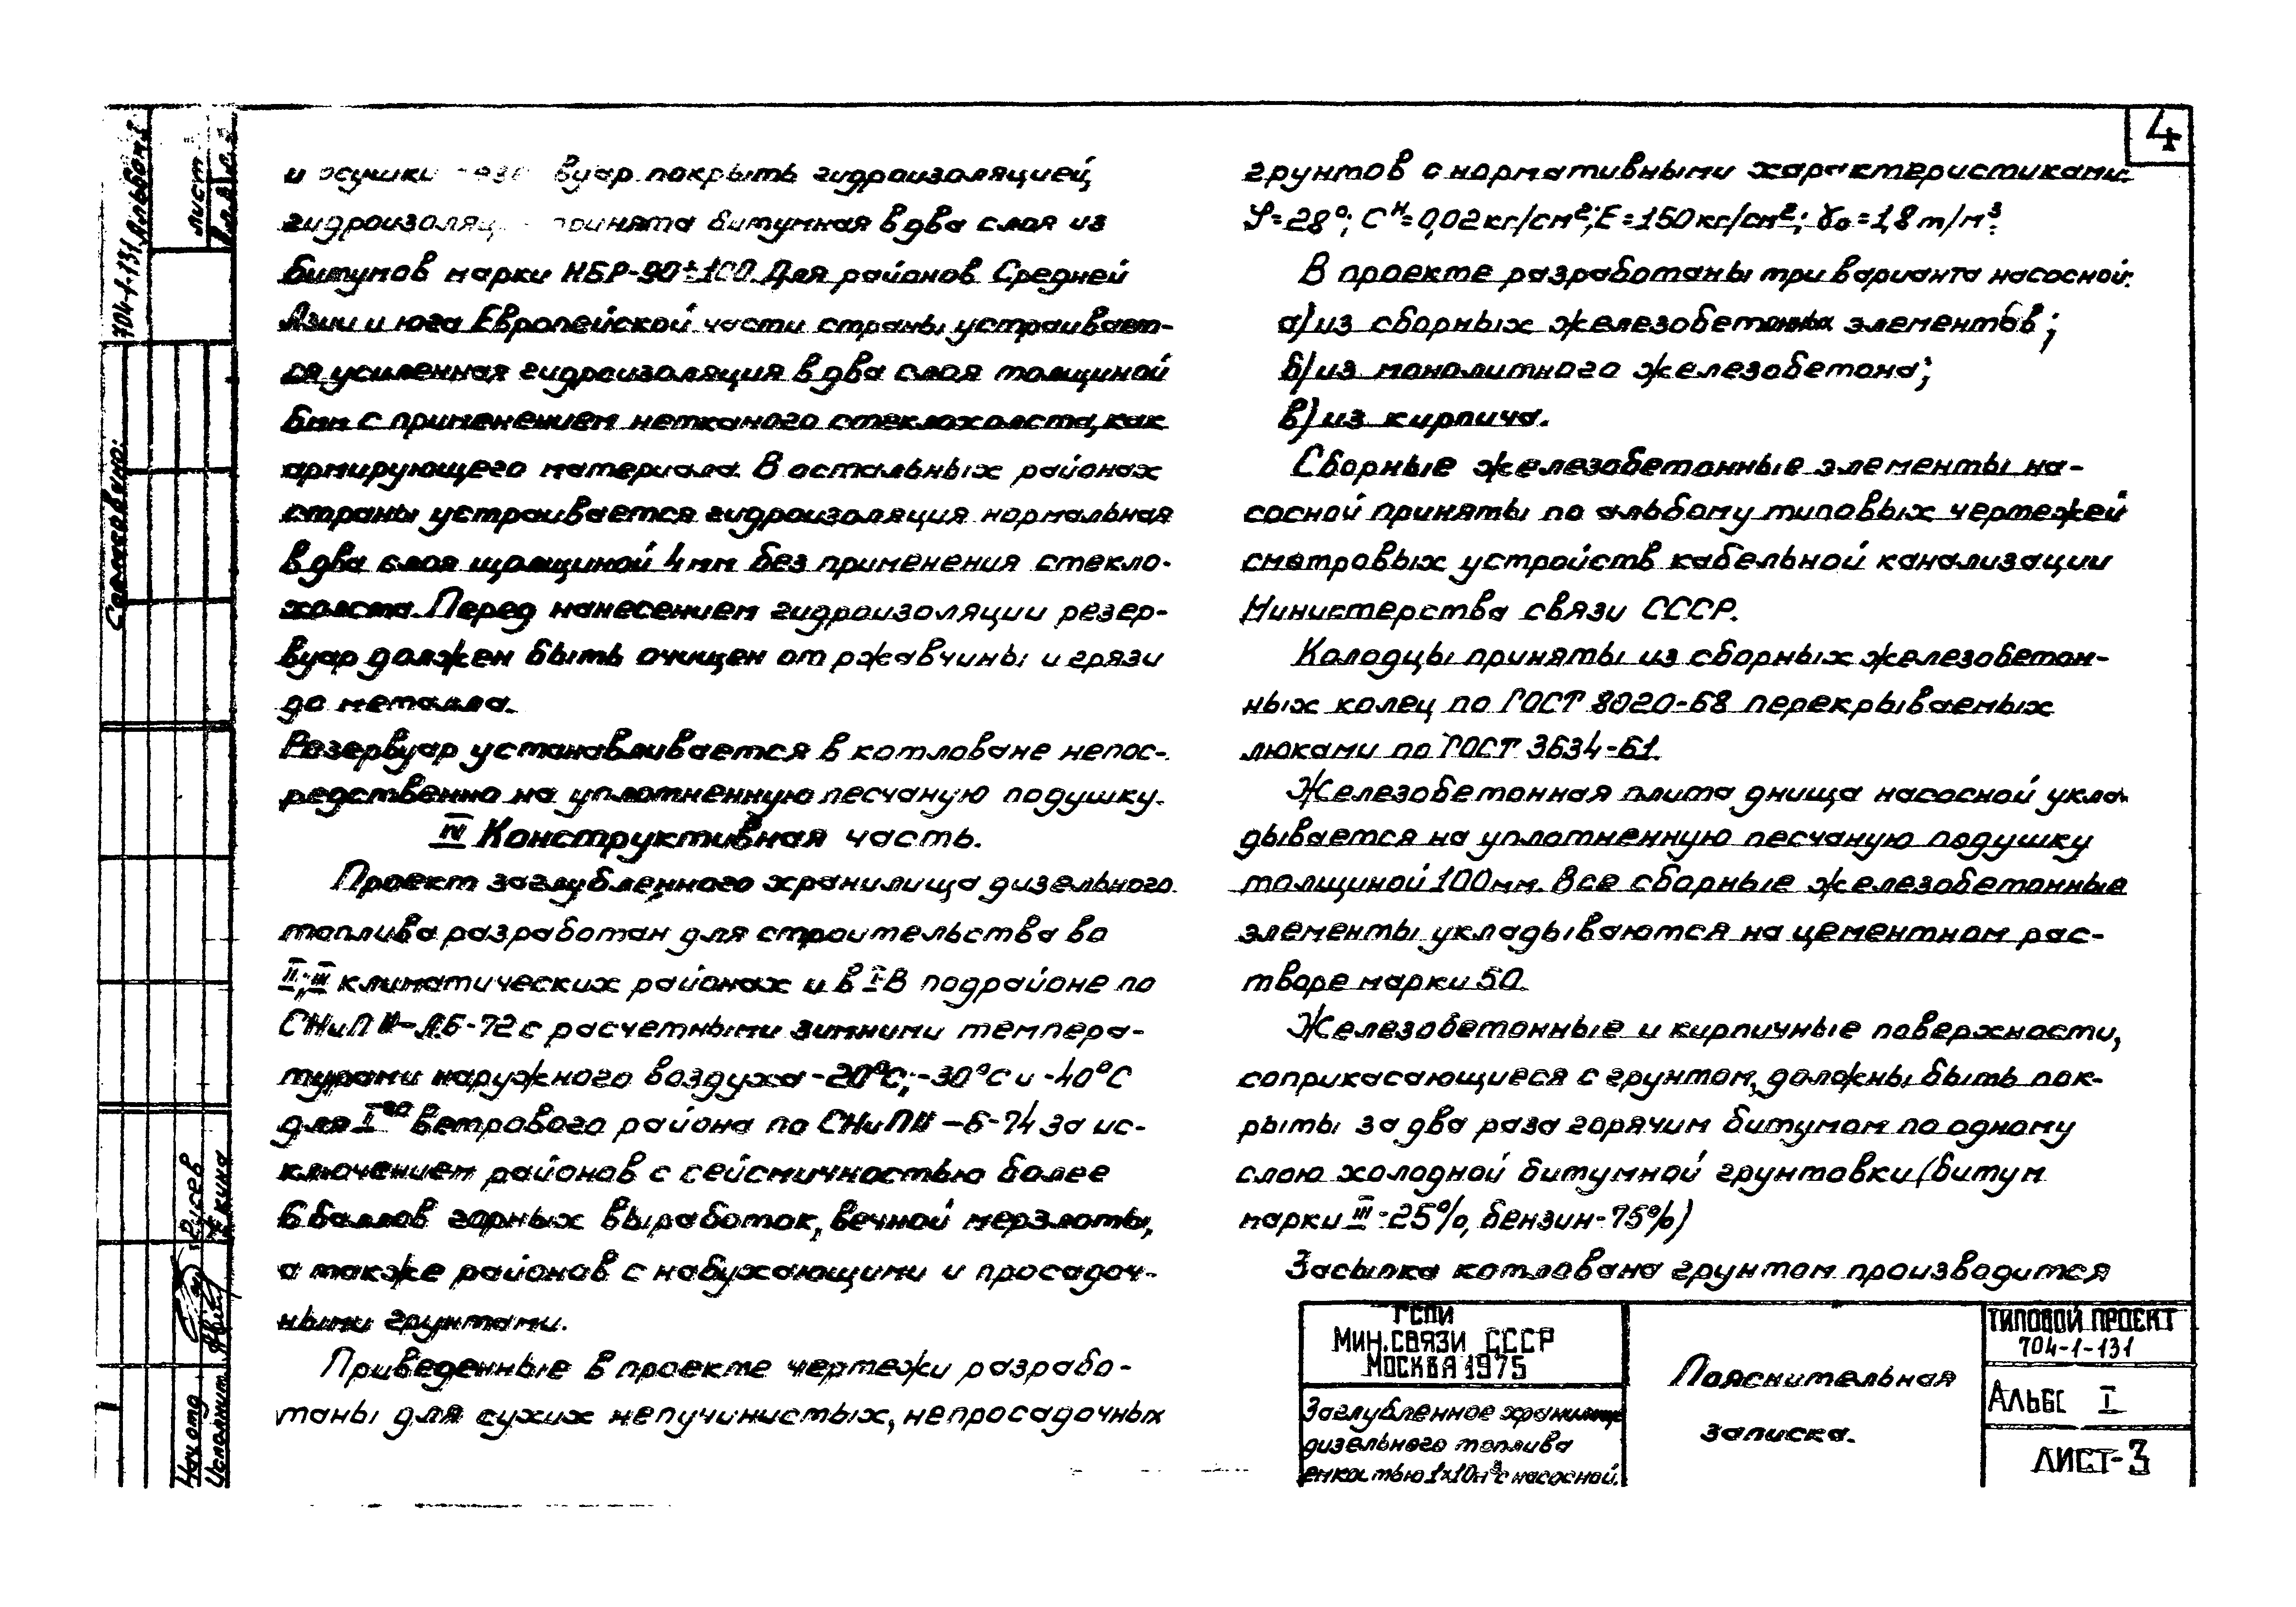 4
и осушки вуар покрыть гидроизоляцией,
гидроизоляц принята битумная в два слоя из
битумов марки НБР-90÷100. Для районов Средней
Азии и юга Европейской части страны устраивает-
ся усиленная гидроизоляция в два слоя толщиной
6мм с применением нетканого стеклохолста, как
армирующего материала. В остальных районах
страны устраивается гидроизоляция нормальная
в два слоя щолщиной 4мм без применения стекло-
холста. Перед нанесением гидроизоляции резер-
вуар должен быть очищен от ржавчины и грязи
до металла.
Резервуар устанавливается в котловане непос-
редственно на уплотненную песчаную подушку.
IV Конструктивная часть.
Проект заглубленного хранилища дизельного
топлива разработан для строительства во
II; III климатических районах и в IВ подрайоне по
СНиП II-А.6-72 с расчетными зимними темпера-
турами наружного воздуха -20°С; -30°С и -40°С
для I го ветрового района по СНиП II-6-74 за ис-
ключением районов с сейсмичностью более
6 баллов горных выработок, вечной мерзлоты,
а также районов с набухающими и просадоч-
ными грунтами.
Приведенные в проекте чертежи разрабо-
таны для сухих непучинистых, непросадочных
грунтов с нормативными характеристиками:
φ=28°; Сᴴ=0,02кг/см²; Е=150кг/см²; γо=1,8т/м³.
В проекте разработаны три варианта насосной:
а) из сборных железобетонных элементов;
б) из монолитного железобетона;
в) из кирпича.
Сборные железобетонные элементы на-
сосной приняты по альбому типовых чертежей
смотровых устройств кабельной канализации
Министерства связи СССР.
Колодцы приняты из сборных железобетон-
ных колец по ГОСТ 8020-68 перекрываемых
люками по ГОСТ 3634-61.
Железобетонная плита днища насосной укла-
дывается на уплотненную песчаную подушку
толщиной 100мм. Все сборные железобетонные
элементы укладываются на цементном рас-
творе марки 50.
Железобетонные и кирпичные поверхности,
соприкасающиеся с грунтом, должны быть пок-
рыты за два раза горячим битумом по одному
слою холодной битумной грунтовки (битум
марки III-25%, бензин-75%)
Засыпка котлована грунтом производится
ГСПИ
МИН.СВЯЗИ СССР
МОСКВА 1975
Заглубленное хранилище
дизельного топлива
емкостью 1х10м³ с насосной.
Пояснительная
записка.
ТИПОВОЙ ПРОЕКТ
704-1-131
АЛЬБ I
ЛИСТ-3
704-1-131 Альбом I
лист
Согласовано:
Нач отд
Исполнит.